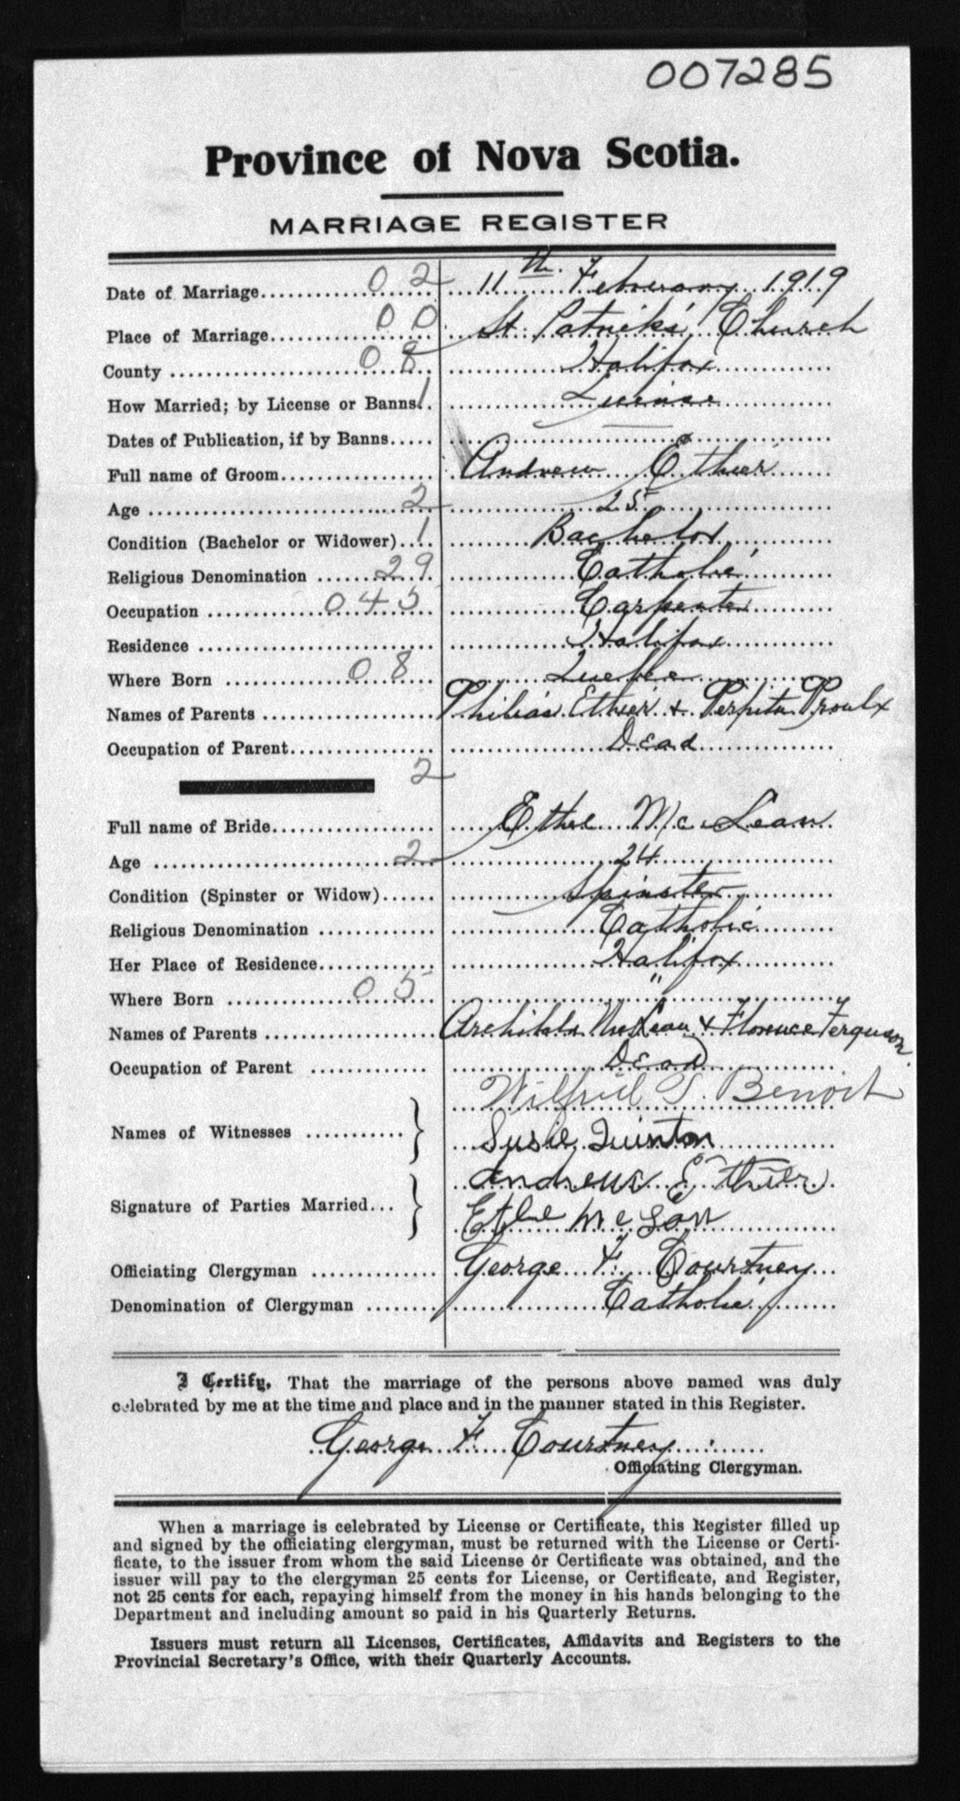 007285
Province of Nova Scotia.
MARRIAGE REGISTER
Date of Marriage 02 11th. February 1919
Place of Marriage 00 St Patrick's Church
County 08 Halifax
How Married; by License or Banns 1 License
Dates of Publication, if by Banns
Full name of Groom Andrew Ethier
Age 2 25
Condition (Bachelor or Widower) 1 Bachelor
Religious Denomination 29 Catholic
Occupation 045 Carpenter
Residence Halifax
Where Born 08 Quebec
Names of Parents Philias Ethier + Perpetu Proulx
Occupation of Parent Dead
2
Full name of Bride Ethel McLean
Age 2 24
Condition (Spinster or Widow) Spinster
Religious Denomination Catholic
Her Place of Residence Halifax
Where Born 05 "
Names of Parents Archibald McLean + Florence Ferguson
Occupation of Parent Dead
Wilfrid T. Benoit
Names of Witnesses
Susie Quinton
Andrew Ethier
Signature of Parties Married
Ethel McLan
Officiating Clergyman George F. Courtney
Denomination of Clergyman Catholic
I Certify, That the marriage of the persons above named was duly
celebrated by me at the time and place and in the manner stated in this Register.
George F. Courtney
Officiating Clergyman.
When a marriage is celebrated by License or Certificate, this Register filled up
and signed by the officiating clergyman, must be returned with the License or Certi-
ficate, to the issuer from whom the said License or Certificate was obtained, and the
issuer will pay to the clergyman 25 cents for License, or Certificate, and Register,
not 25 cents for each, repaying himself from the money in his hands belonging to the
Department and including amount so paid in his Quarterly Returns.
Issuers must return all Licenses, Certificates, Affidavits and Registers to the
Provincial Secretary's Office, with their Quarterly Accounts.